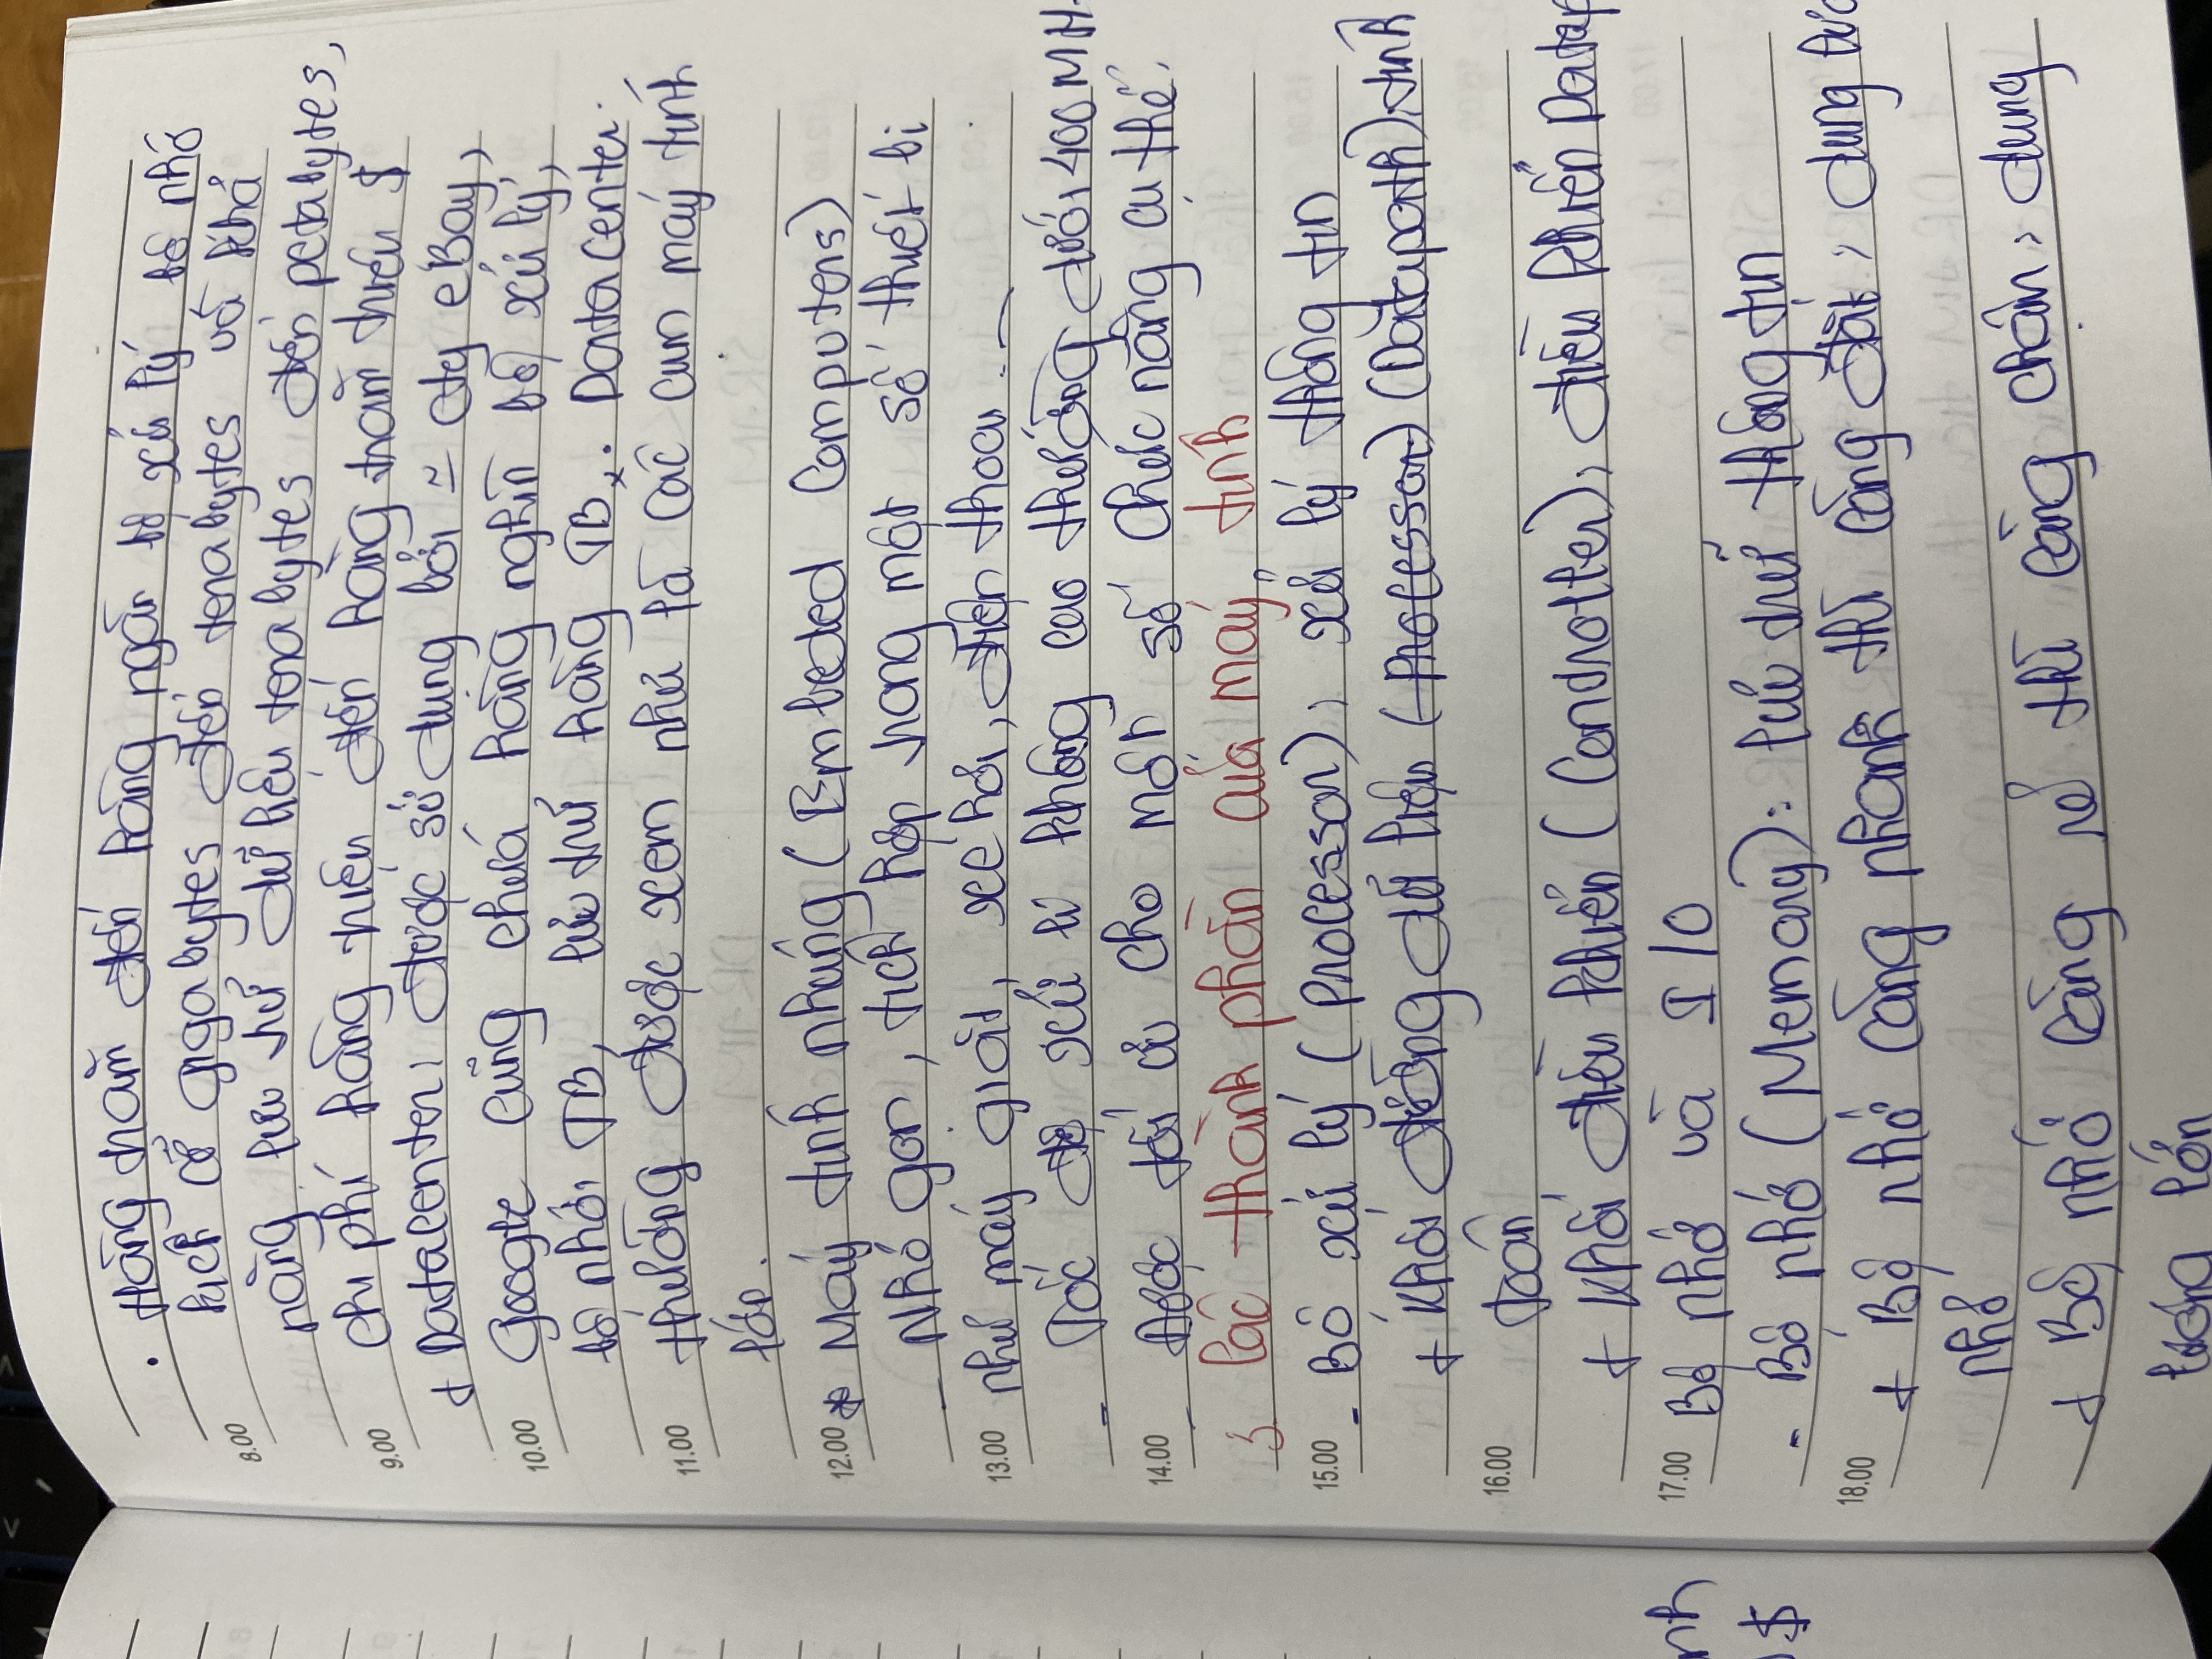 . Hàng trăm đến hàng ngàn bộ xử lý, bộ nhớ
kích cỡ gigabytes đến terabytes và khả
8.00
năng lưu trữ dữ liệu terabytes đến petabytes,
chi phí hàng triệu đến hàng trăm triệu $
9.00
+ Datacenter: được sử dụng bởi ~ cty eBay,
Google cũng chứa hàng nghìn bộ xử lý,
10.00
bộ nhớ TB, lưu trữ hàng TB. Datacenter
thường được xem như là các cụm máy tính
11.00
lớn.
12.00 * Máy tính nhúng (Embeded Computers)
- Nhỏ gọn, tích hợp trong một số thiết bị
13.00 như máy giặt, xe hơi, điện thoại...
- Tốc độ xử lí không cao thường dưới 400MH
14.00
- Được tối ưu cho một số chức năng cụ thể.
3. Các thành phần của máy tính
15.00
- Bộ xử lý (Processor): xử lý thông tin
+ Khối đường dữ liệu (Processor) (Datapath): tính
16.00
toán
+ Khối điều khiển (Controller): điều khiển Datap
17.00 Bộ nhớ và I/O
- Bộ nhớ (Memory): lưu trữ thông tin
18.00
+ Bộ nhớ càng nhanh thì càng đắt, dung lượ
nhỏ
+ Bộ nhớ càng rẻ thì càng chậm, dung
lượng lớn
nh
$